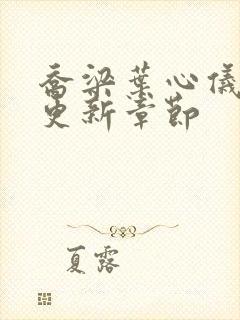 乔梁叶心仪
更新章节
夏露